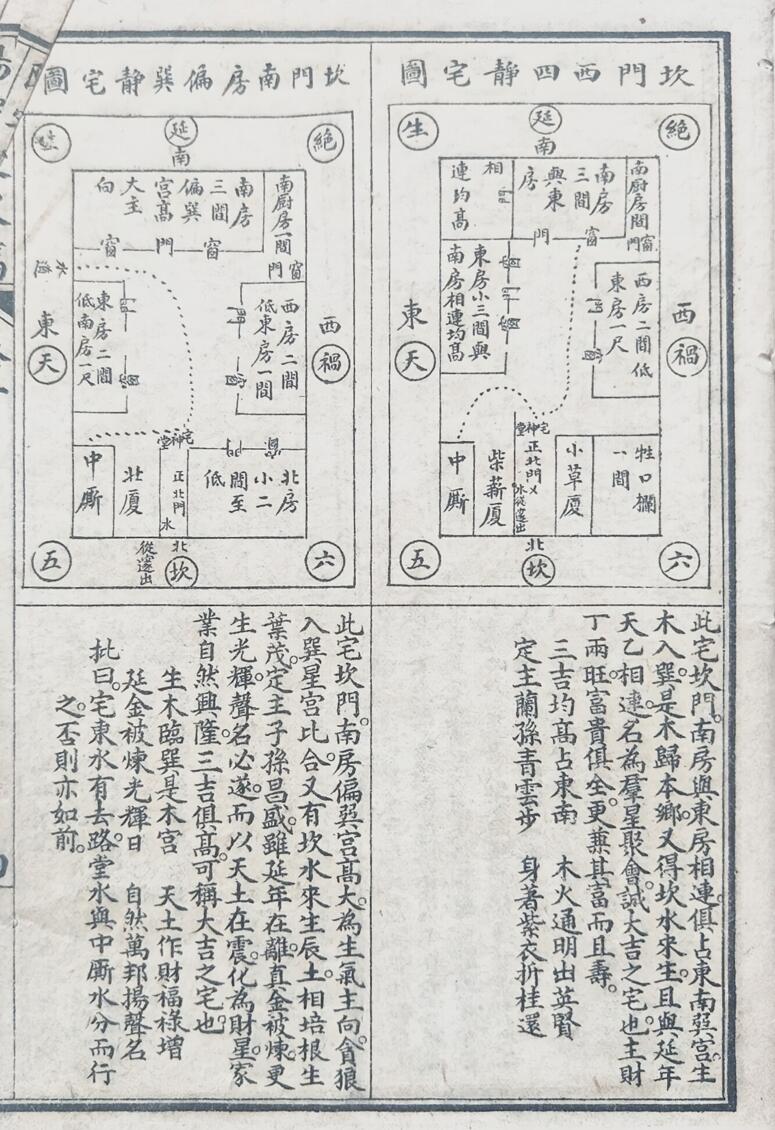 坎門西四靜宅圖
絕
延
生
南
南廚房一間
窗
門
南房三間與東房
窗
門
相連均高
西房二間低東房一尺
東房小三間與南房相連均高
西
禍
東
天
宅神堂
牲口欄一間
小草廈
正北門
水從邊出
柴薪廈
中廝
六
北
坎
五
此宅坎門。南房與東房相連。俱占東南巽宮。生
木入巽。是木歸本鄉。又得坎水來生。且與延年
天乙相連。名為羣星聚會。誠大吉之宅也。主財
丁兩旺。富貴俱全。更兼其富而且壽。
三吉均高占東南 木火通明出英賢
定主蘭孫青雲步 身著紫衣折桂還
坎門南房偏巽靜宅圖
絕
延
生
南
南廚房一間
窗
門
南房三間偏巽宮高大主向
窗
門
窗
西房二間低東房一間
東房二間低南房一尺
西
禍
東
天
宅神堂
北房小二間至低
正北門
水
北廈
中廝
六
北
坎
從邊出
五
此宅坎門。南房偏巽宮高大。為生氣主向。貪狼
入巽星宮比合。又有坎水來生。辰土相培。根生
葉茂。定主子孫昌盛。雖延年在離。真金被煉。更
生光輝。聲名必遂。而以天土在震。化為財星。家
業自然興隆。三吉俱高。可稱大吉之宅也。
生木臨巽是木宮 天土作財福祿增
延金被煉光輝日 自然萬邦揚聲名
批曰。宅東水有去路。堂水與中廝水分而行
之。否則亦如前。